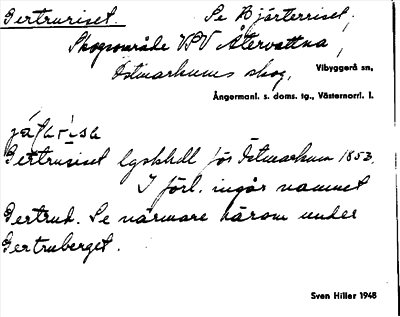 Gertruriset. Se Hjärterriset.
Skogsområde VSV Återvattna,
Östmarkums skog, Vibyggerå sn,
Ångermanl. s. doms. tg., Västernorrl. l.
Gertruriset lgskhdl för Östmarkum 1853.
I förl. ingår namnet
Gertrud. Se närmare härom under
Gertruberget.
Sven Hiller 1948